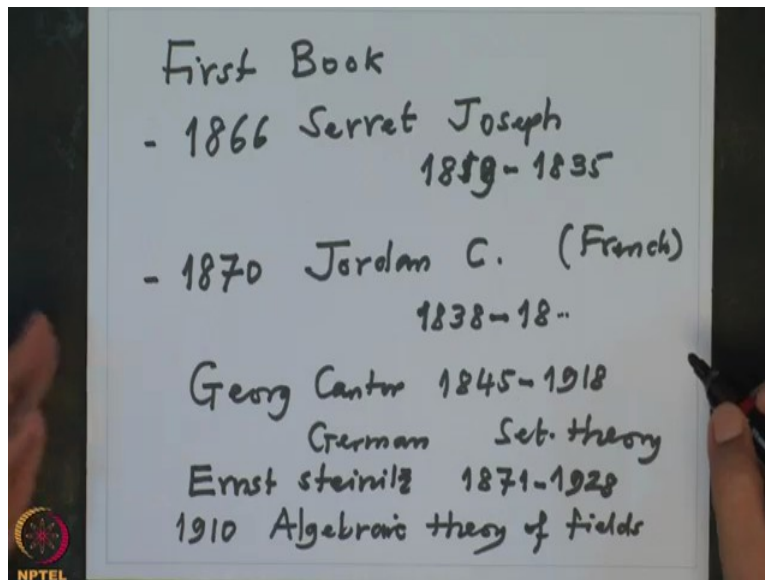 First Book
- 1866 Serret Joseph
1819 - 1835
- 1870 Jordan C. (French)
1838 - 18..
Georg Cantor 1845 - 1918
German Set. theory
Ernst steinitz 1871 - 1928
1910 Algebraic theory of fields
NPTEL